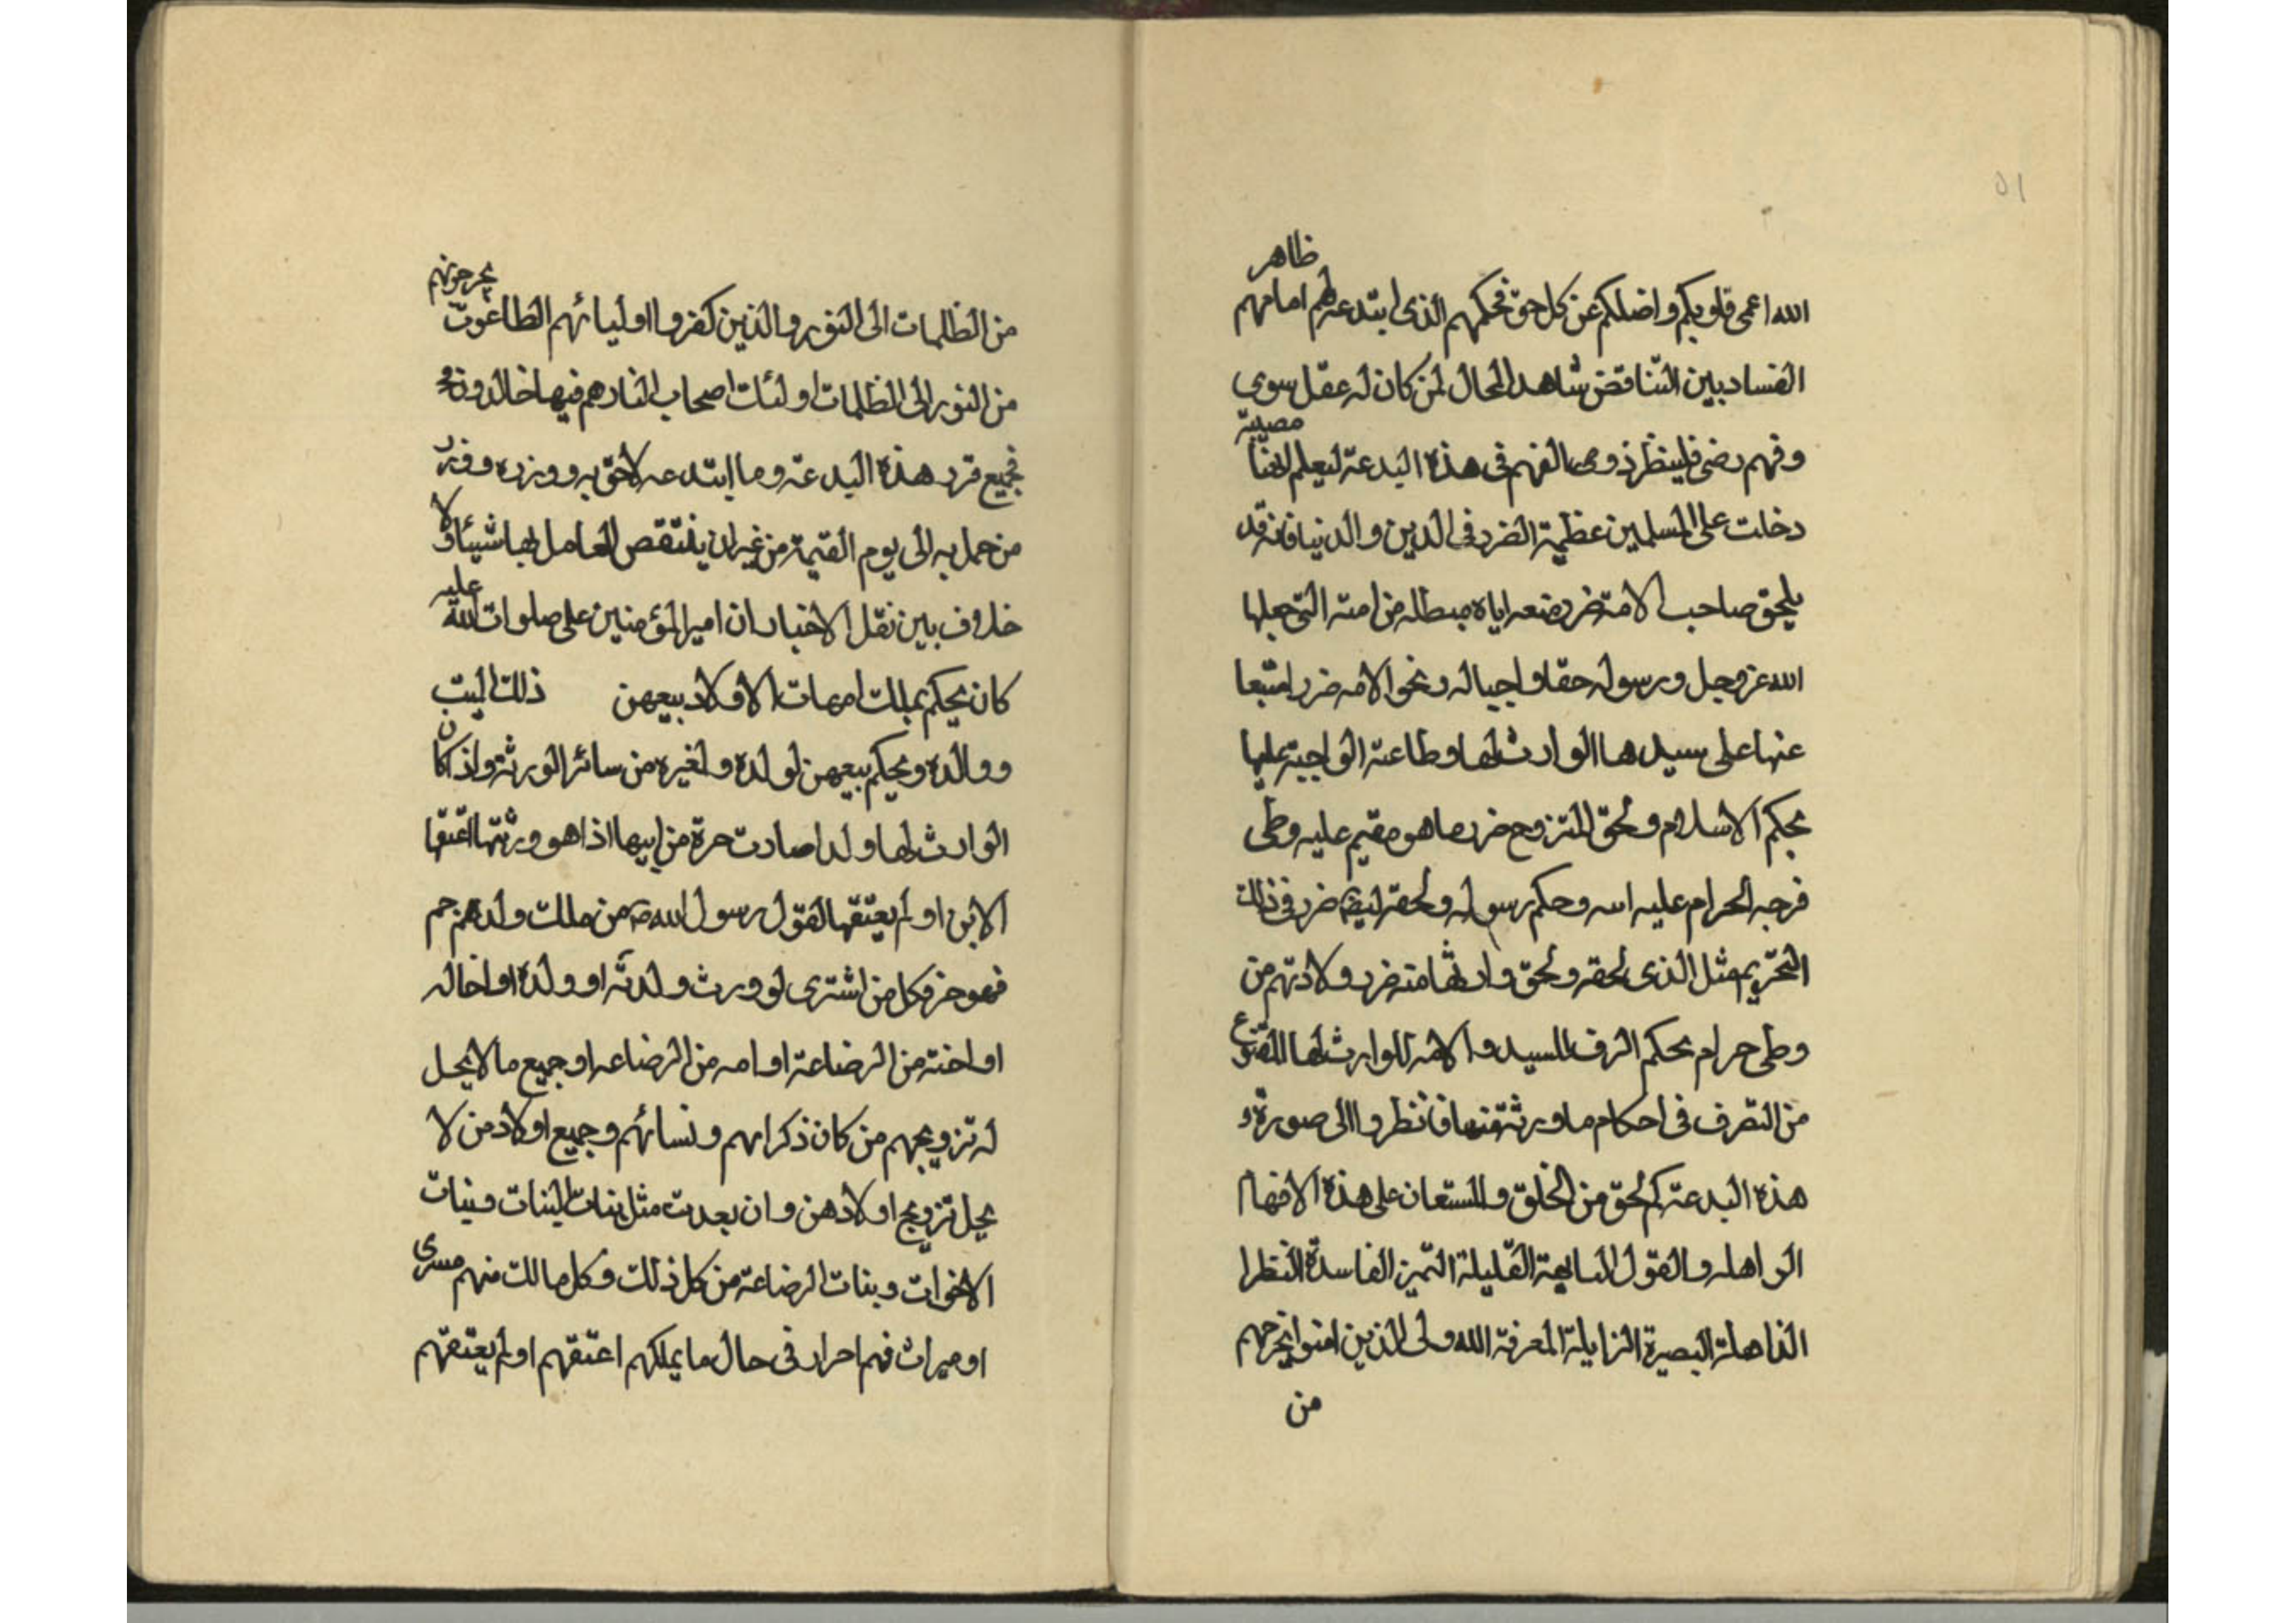 ٥١
الله اعمى قلوبكم واضلكم عن كل حق فحكمهم الذى ابتدعه لهم امامهم ظاهر
الفساد بين التناقض شاهد المحال لمن كان له عقل سوى
وفهم رضى فلينظر ذو الفهم فى هذه البدعة ليعلم انها مصيبة
دخلت على المسلمين عظيمة الضرر فى الدين والدنيا فانه قد
يلحق صاحب الامة ضرر منعه اياه من امته التى جعلها
الله عز وجل ورسوله حقا واجبا له ونحو الامه ضرر
عنها على سيدها الوارث لها وطاعته الواجبة عليها
بحكم الاسلام ولحق المتزوج ضرر ما هو مقيم عليه وطى
فرجه الحرام عليه الله وحكم رسوله ولحقه ايضا ضرر فى ذلك
التحريم مثل الذى لحقه ولحق وارثها منه ضرر ولادتهم من
وطى حرام بحكم الرق للسيد والامه للوارث لها الممنوع
من التصرف فى احكام ما ورثه منها فانظروا الى صورة
هذه البدعة كم لحق من الخلق والمستعان على هذه الافهام
الواهله والقول القليلة التميز الفاسدة النظر
الذاهلة البصيرة الزايلة المعرفة الله ولى الذين امنوا يخرجهم
من
من الظلمات الى النور والذين كفروا اوليائهم الطاغوت يخرجونهم
من النور الى الظلمات اولئك اصحاب النار هم فيها خالدون
فجميع هذه البدعة وما ابتدعه لاحق به ووزره ووزر
من عمل به الى يوم القيمة من غير ان ينتقص العامل بها شيئا ولا
خلاف بين نقل الاخبار ان امير المؤمنين على صلوات الله عليه
كان يحكم بملك امهات الاولاد بيعهن ذلك
ووالده ويحكم ببيعهن لولده ولغيره من سائر الورثة واذ كان
الوارث لها ولدا صارت حرة من ابيها اذا هو ورثتها اعتقها
الابن او لم يعتقها لقول رسول الله ص من ملك
فهو حر وكل من اشترى او ورث ولدته او ولده او خاله
او اخته من الرضاعة او امه من الرضاعه او جميع ما لا يحل
له تزويجهم من كان ذكرانهم ونسائهم وجميع اولاد من لا
يحل تزويج اولادهن وان بعدت مثل بنات البنات وبنات
الاخوات وبنات الرضاعة من كل ذلك وكل مالك منهم
او ميراث فهم احرار فى حال ما يملكهم اعتقهم او لم يعتقهم